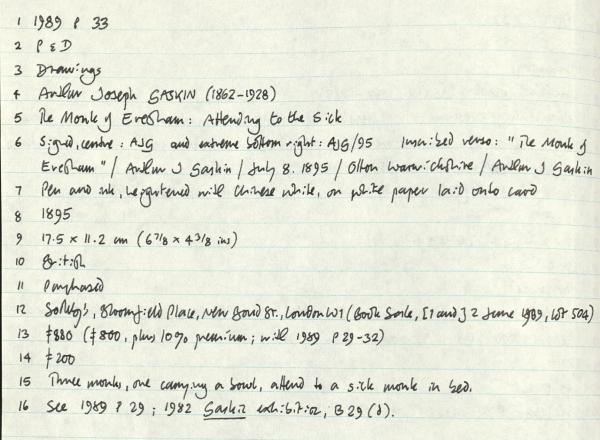 1 1989 P 33
2 P & D
3 Drawings
4 Arthur Joseph GASKIN (1862-1928)
5 The Monk of Evesham: Attending to the Sick
6 Signed, centre: AJG and extreme bottom right: AJG/95 Inscribed verso: "The Monk of
Evesham" / Arthur J Gaskin / July 8. 1895 / Olton Warwickshire / Arthur J Gaskin
7 Pen and ink, heightened with Chinese white, on white paper laid onto card
8 1895
9 17.5 x 11.2 cm (6 7/8 x 4 3/8 ins)
10 British
11 Purchased
12 Sotheby's, Bloomfield Place, New Bond St., London W1 (Book Sale, [1 and] 2 June 1989, lot 504)
13 £880 (£800, plus 10% premium; with 1989 P 29-32)
14 £200
15 Three monks, one carrying a bowl, attend to a sick monk in bed.
16 See 1989 P 29; 1982 Gaskin exhibition, B29 (d).